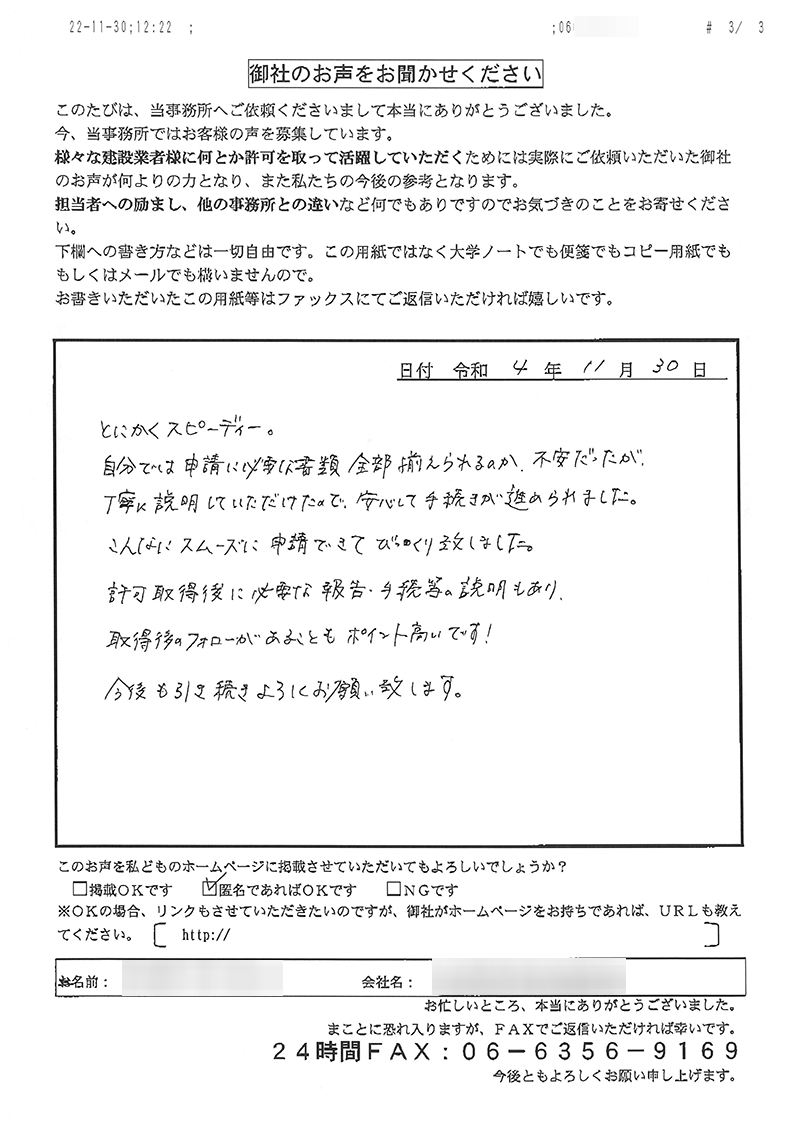 22-11-30;12:22 ; ;06 # 3/ 3
御社のお声をお聞かせください
このたびは、当事務所へご依頼くださいまして本当にありがとうございました。
今、当事務所ではお客様の声を募集しています。
様々な建設業者様に何とか許可を取って活躍していただくためには実際にご依頼いただいた御社
のお声が何よりの力となり、また私たちの今後の参考となります。
担当者への励まし、他の事務所との違いなど何でもありですのでお気づきのことをお寄せくださ
い。
下欄への書き方などは一切自由です。この用紙ではなく大学ノートでも便箋でもコピー用紙でも
もしくはメールでも構いませんので。
お書きいただいたこの用紙等はファックスにてご返信いただければ嬉しいです。
日付 令和 4 年 11 月 30 日
とにかくスピーディー。
自分では申請に必要な書類全部揃えられるのか、不安だったが、
丁寧に説明していただけたので、安心して手続きが進められました。
こんなにスムーズに申請できてびっくり致しました。
許可取得後に必要な報告・手続等の説明もあり、
取得後のフォローがあることもポイント高いです!
今後も引き続きよろしくお願い致します。
このお声を私どものホームページに掲載させていただいてもよろしいでしょうか?
□掲載OKです ☑匿名であればOKです □NGです
※OKの場合、リンクもさせていただきたいのですが、御社がホームページをお持ちであれば、URLも教え
てください。 [ http:// ]
お名前: 会社名:
お忙しいところ、本当にありがとうございました。
まことに恐れ入りますが、FAXでご返信いただければ幸いです。
24時間FAX:06-6356-9169
今後ともよろしくお願い申し上げます。